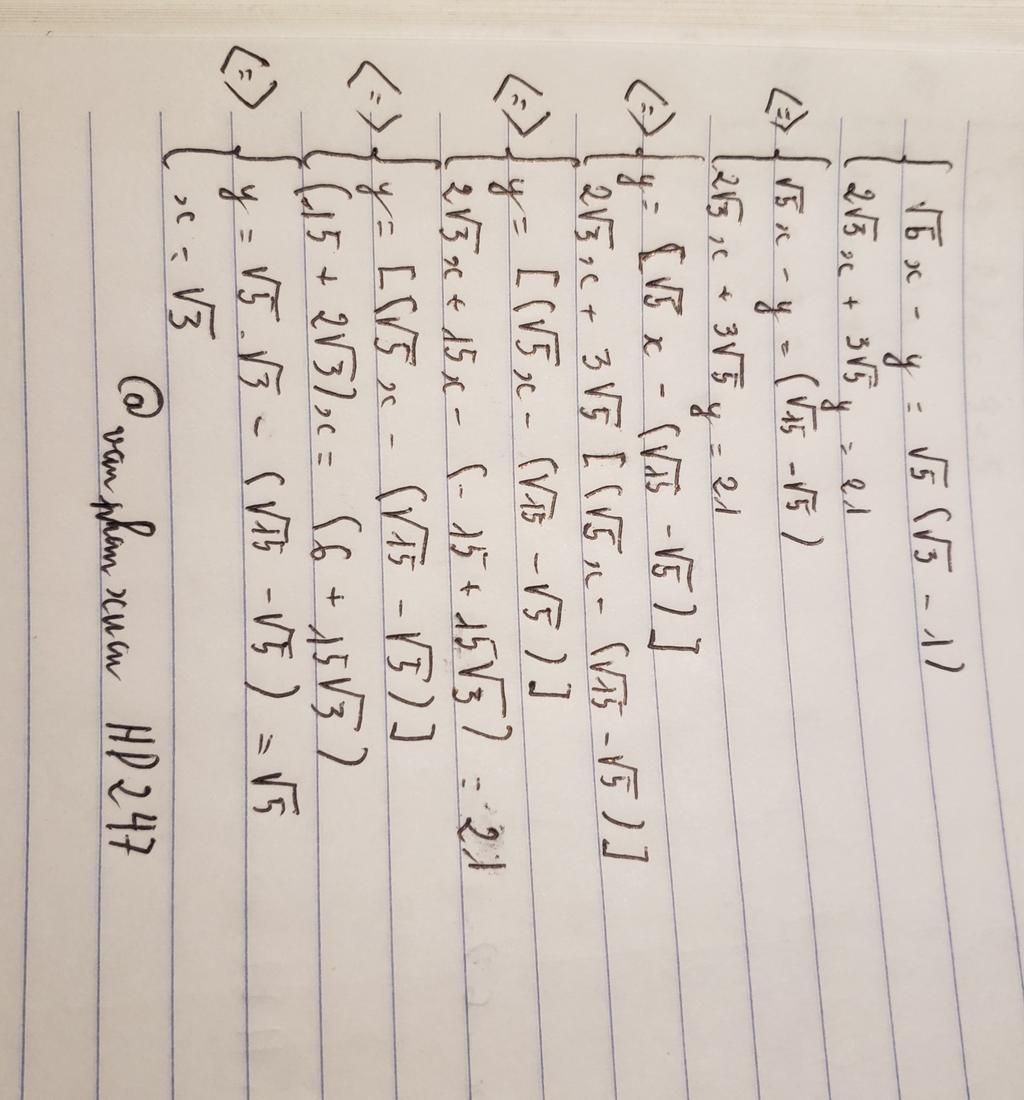 { √5 x - y = √5 (√3 - 1)
{ 2√3 x + 3√5 y = 21
<=> { √5 x - y = (√15 - √5)
{ 2√3 x + 3√5 y = 21
<=> { y = [√5 x - (√15 - √5)]
{ 2√3 x + 3√5 [(√5 x - (√15 - √5)]
<=> { y = [(√5 x - (√15 - √5)]
{ 2√3 x + 15x - (-15 + 15√3) = 21
<=> { y = [(√5 x - (√15 - √5)]
{ (15 + 2√3) x = (6 + 15√3)
<=> { y = √5 . √3 - (√15 - √5) = √5
{ x = √3
@vanphamxuan HD247